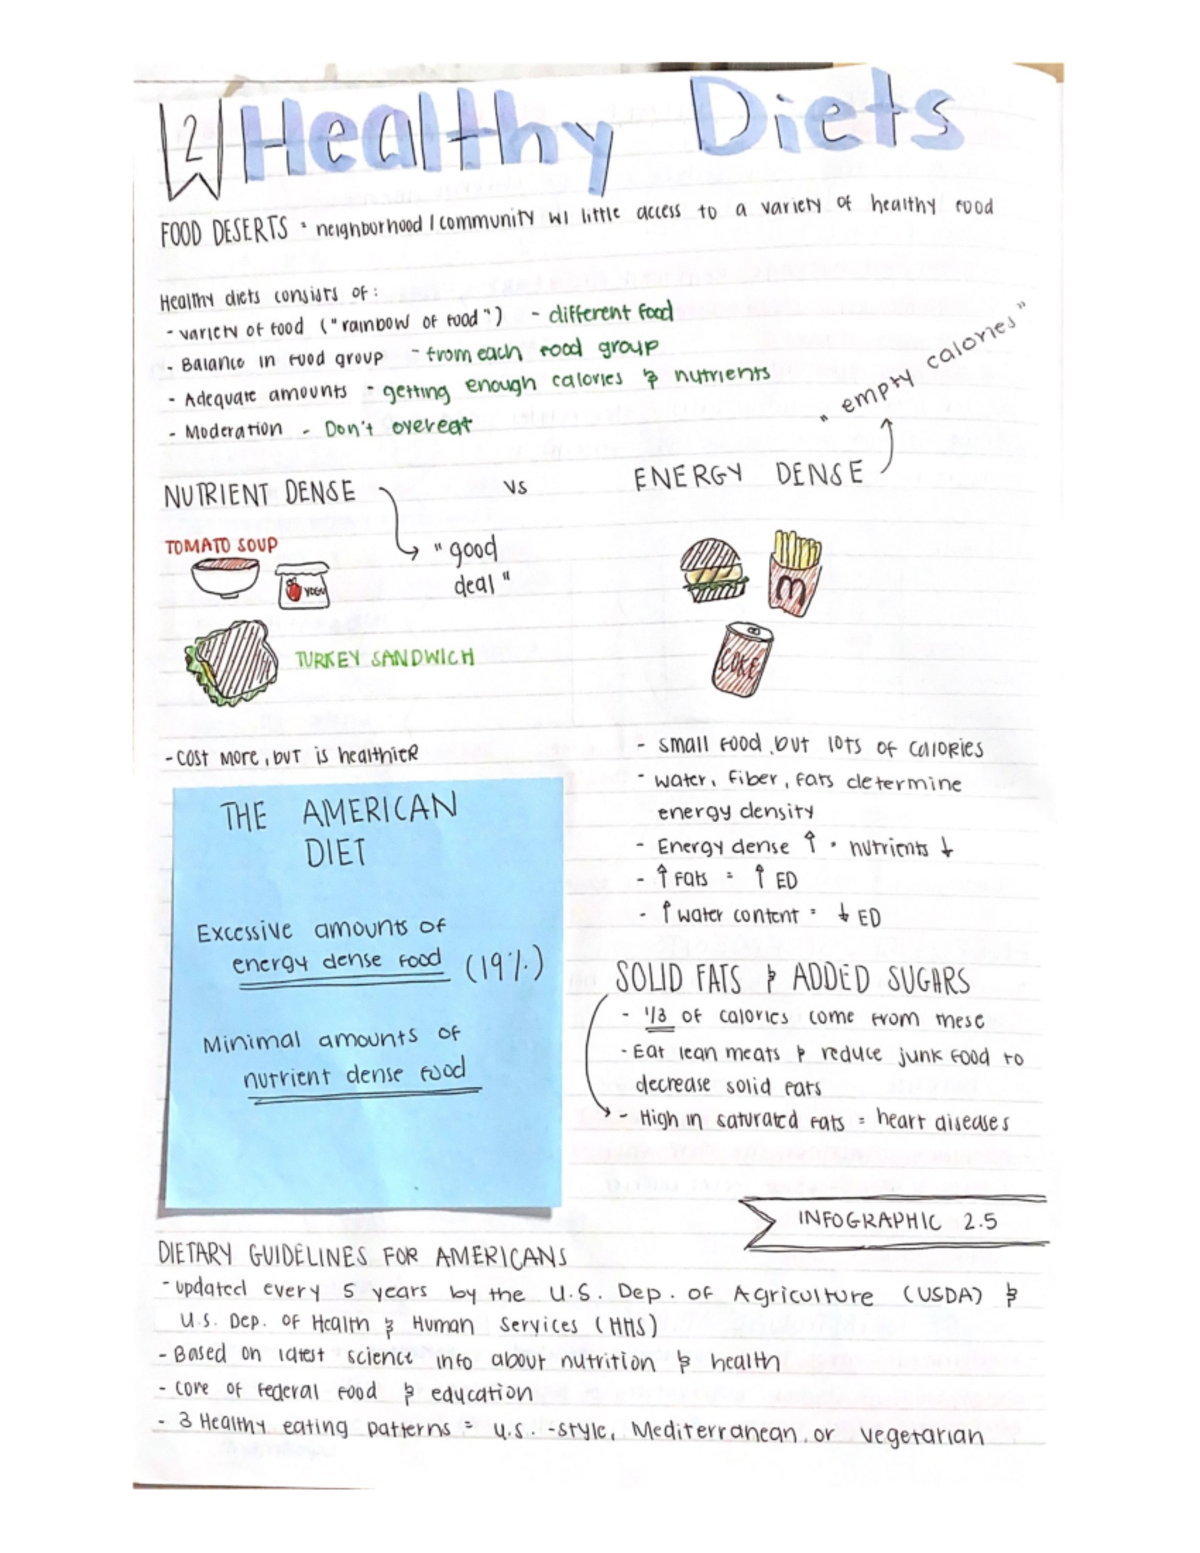 2 Healthy Diets
FOOD DESERTS = neighborhood / community w/ little access to a variety of healthy food
Healthy diets consists of:
- variety of food ("rainbow of food") - different food
- Balance in food group - from each food group
- Adequate amounts - getting enough calories & nutrients
- Moderation - Don't overeat
"empty calories"
NUTRIENT DENSE vs ENERGY DENSE
TOMATO SOUP
"good
deal"
YOGU
M
TURKEY SANDWICH
COKE
- cost more, but is healthier
THE AMERICAN
DIET
Excessive amounts of
energy dense food (19%)
Minimal amounts of
nutrient dense food
- small food, but lots of calories
- water, fiber, fats determine
energy density
- Energy dense ↑ · nutrients ↓
- ↑ fats = ↑ ED
- ↑ water content = ↓ ED
SOLID FATS & ADDED SUGARS
- 1/3 of calories come from these
- Eat lean meats & reduce junk food to
decrease solid fats
- High in saturated fats = heart diseases
INFOGRAPHIC 2.5
DIETARY GUIDELINES FOR AMERICANS
- updated every 5 years by the U.S. Dep. of Agriculture (USDA) &
U.S. Dep. of Health & Human Services (HHS)
- Based on latest science info about nutrition & health
- core of federal food & education
- 3 Healthy eating patterns = U.S.-style, Mediterranean, or vegetarian